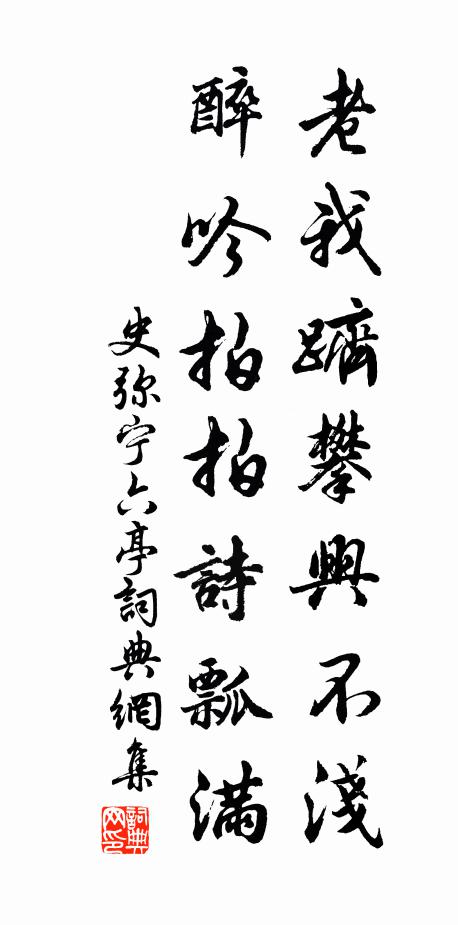 老我躋攀興不淺
醉吟拍拍詩瓢滿
史弥宁六亭詞典網集
詞典网印